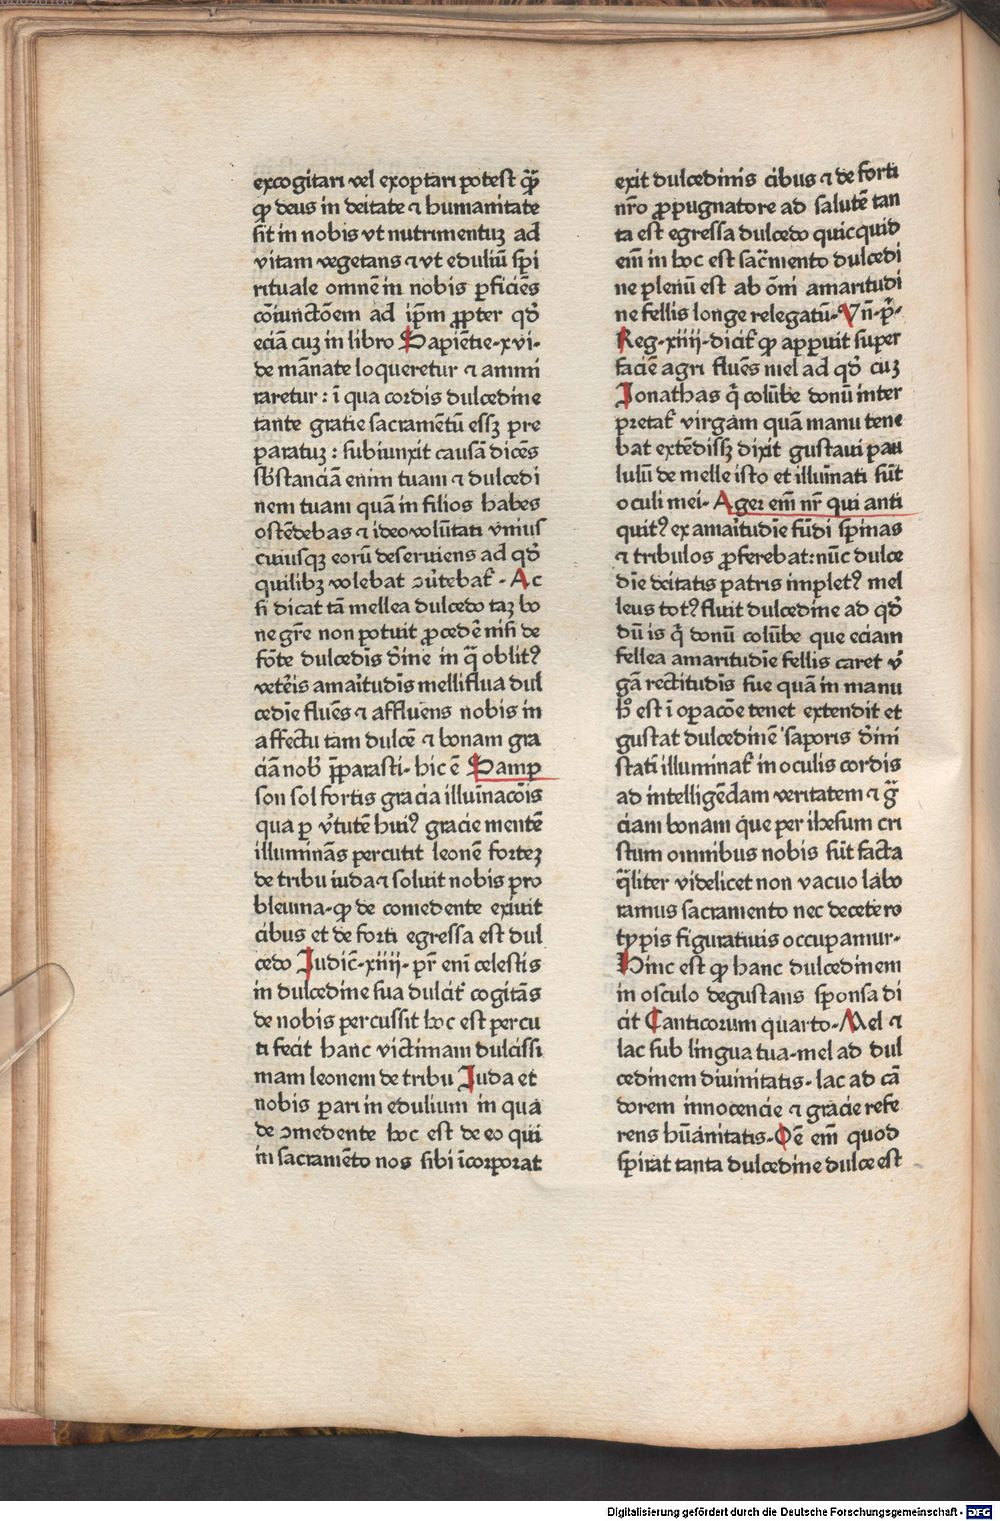 excogitari vel exoptari potest q̄ꝫ
ꝙ deus in deitate ⁊ humanitate
sit in nobis vt nutrimentuꝫ ad
vitam vegetans ⁊ vt ediliū spi
rituale omnē in nobis ꝑficiēs
cōiunctōem ad ip̄m ꝓpter qd̓
eciā cuꝫ in libro Sapiētie·xvi·
de māna te loqueretur ⁊ ammi
raretur : ī qua cordis dulcedine
tante gratie sacramētū essꝫ pre
paratuꝫ : subiunxit causā dicēs
sb̄stanciā enim tuam ⁊ dulcedi
nem tuam quā in filios habes
ostēdebas ⁊ ideo volūtati vnius
cuiusqꝫ eorū deseruiens ad qd̓
quilibꝫ volebat ↄu̓tebat᷑ · Ac
si dicat tā mellea dulcedo taꝫ bo
ne gr̄e non potuit ꝓcedē nisi de
fōte dulcedīs d̓ine in q̄ oblitꝰ
vetēis amaritudīs melliflua dul
cedīe fluēs ⁊ affluens nobis in
affectu tam dulcē ⁊ bonam gra
ciā nob̓ p̄parasti· hic ē Samp
son sol fortis gracia illuīnacōis
qua ꝑ v̓tutē huiꝰ gracie mentē
illuminās percutit leonē forteꝫ
de tribu iuda ⁊ soluit nobis pro
bleuma·ꝙ de comedente exiuit
cibus et de forti egressa est dul
cedo Judic̄·xiiii· pr̄ eni celestis
in dulcedine sua dulcit᷑ cogitās
de nobis percussit hoc est percu
ti fecit hanc victimam dulcissi
mam leonem de tribu Juda et
nobis parari in edulium in qua
de ↄmedente hoc est de eo qui
in sacramēto nos sibi īcorporat
exit dulcedinis cibus ⁊ de forti
nr̄o ꝓpugnatore ad salutē tan
ta est egressa dulcedo quicquid
em̄ in hoc est sac̄mento dulcedi
ne plenū est ab ōni amaritudi
ne fellis longe relegatū·Vn̄·p̄·
Reg·xiiii·dicit᷑ ꝙ apparuit super
faciē agri fluēs mel ad qd̓ cuꝫ
Jonathas q̄ colūbe donū inter
pretat᷑ virgam quā manu tene
bat extēdissꝫ dixit gustaui pau
lulū de melle isto et illuīnati sūt
oculi mei· Ager em̄ nr̄ qui anti
quitꝰ ex amaritudīe fūdi spinas
⁊ tribulos ꝓferebat : nūc dulce
dīe deitatis patris impletꝰ mel
leus totꝰ fluit dulcedine ad qd̓
dū is q̄ donū colūbe que eciam
fellea amaritudīe fellis caret v̓
gā rectitudīs sue quā in manu
h̓ est ī opacōe tenet extendit et
gustat dulcedinē saporis d̓ini
statī illuminat᷑ in oculis cordis
ad intelligēdam veritatem ⁊ ḡ
ciam bonam que per ihesum cri
stum omnibus nobis sūt facta
q̄liter videlicet non vacuo labo
ramus sacramento nec de cetero
typis figuratiuis occupamur·
Hinc est ꝙ hanc dulcedinem
in osculo degustans sponsa di
cit Canticorum quarto·Mel ⁊
lac sub lingua tua·mel ad dul
cedinem diuinitatis·lac ad cā
dorem innocencie ⁊ gracie refe
rens hūanitatis·Oē em̄ quod
spirat tanta dulcedine dulce est
Digitalisierung gefördert durch die Deutsche Forschungsgemeinschaft - DFG